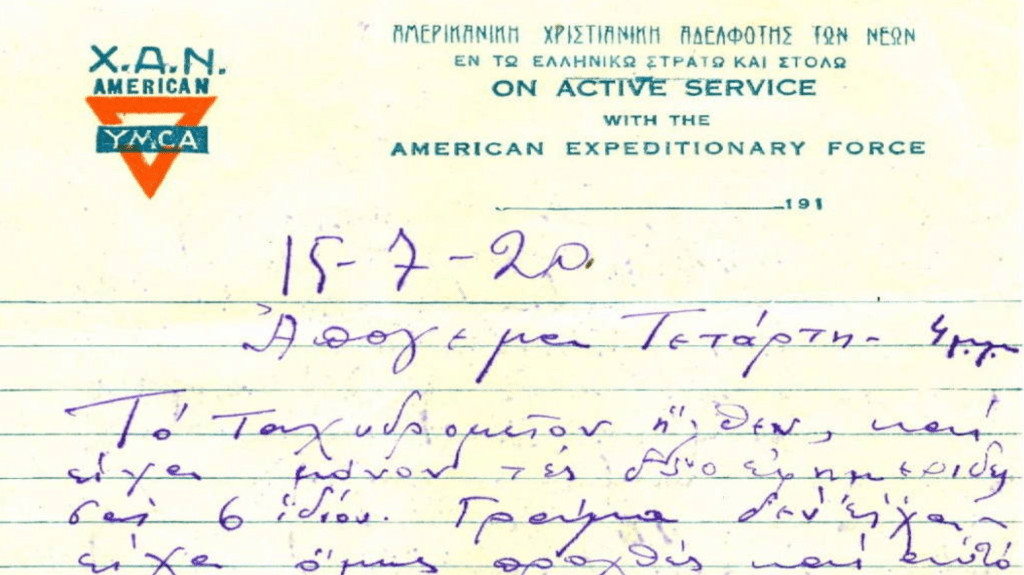 Χ.Α.Ν.
AMERICAN
YMCA
ΑΜΕΡΙΚΑΝΙΚΗ ΧΡΙΣΤΙΑΝΙΚΗ ΑΔΕΛΦΟΤΗΣ ΤΩΝ ΝΕΩΝ
ΕΝ ΤΩ ΕΛΛΗΝΙΚΩ ΣΤΡΑΤΩ ΚΑΙ ΣΤΟΛΩ
ON ACTIVE SERVICE
WITH THE
AMERICAN EXPEDITIONARY FORCE
191
15-7-20.
Ἀπόγεμα Τετάρτη- 4 μ.μ.
Τό ταχυδρομεῖον ἦλθεν, καί
εἶχα μόνον τές δύο ἐφημερίδες
σας 6 ἰδίου. Γράμμα δέν εἶχα-
εἶχα ὅμως προχθές καί αὐτό